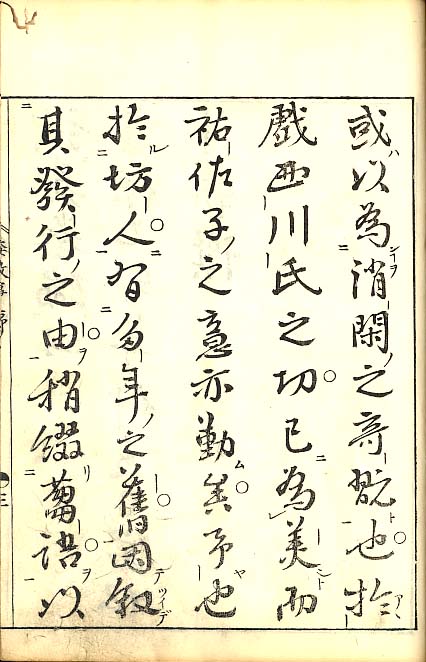 或以為消閑之奇翫也於
戲西川氏之功已為美而
祐佐子之意亦勤矣予也
於坊人有多年之舊因叙
其發行之由稍綴蕪語以